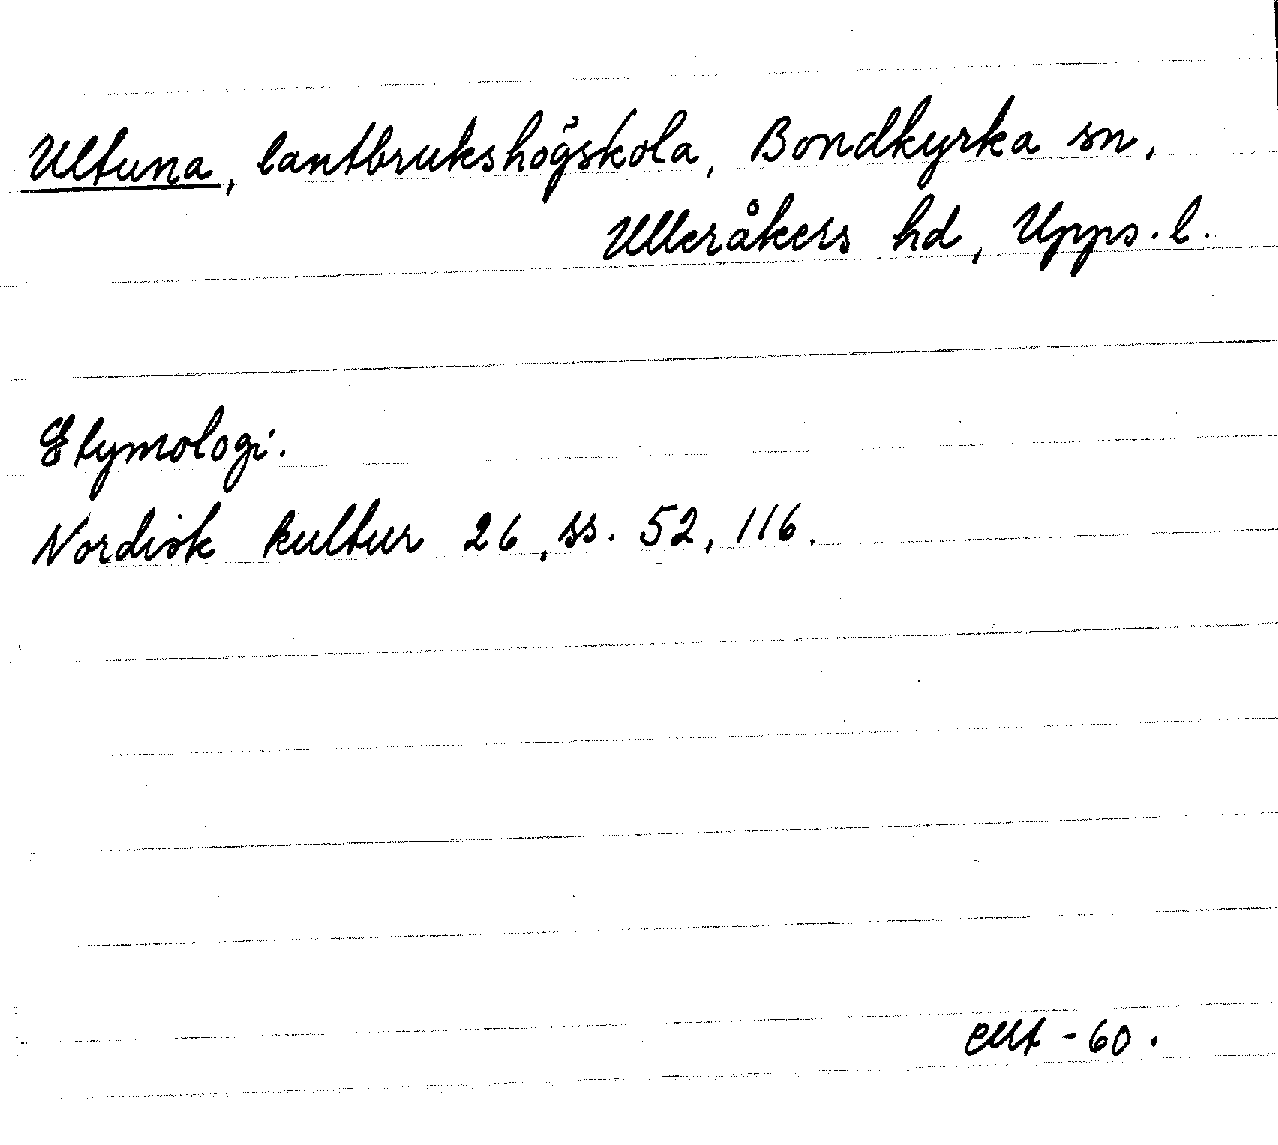 Ultuna, lantbrukshögskola, Bondkyrka sn,
Ulleråkers hd, Upps. l.
Etymologi.
Nordisk kultur 26, ss. 52, 116.
-60.